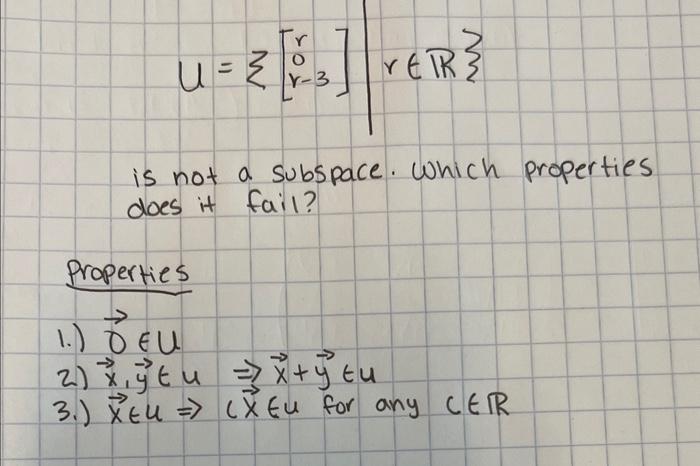 U = { [ r 0 r-3 ] | r ∈ ℝ }
is not a subspace. Which properties
does it fail?
Properties
1.) 0⃗ ∈ U
2.) x⃗, y⃗ ∈ U ⇒ x⃗ + y⃗ ∈ U
3.) x⃗ ∈ U ⇒ cx⃗ ∈ U for any c ∈ ℝ